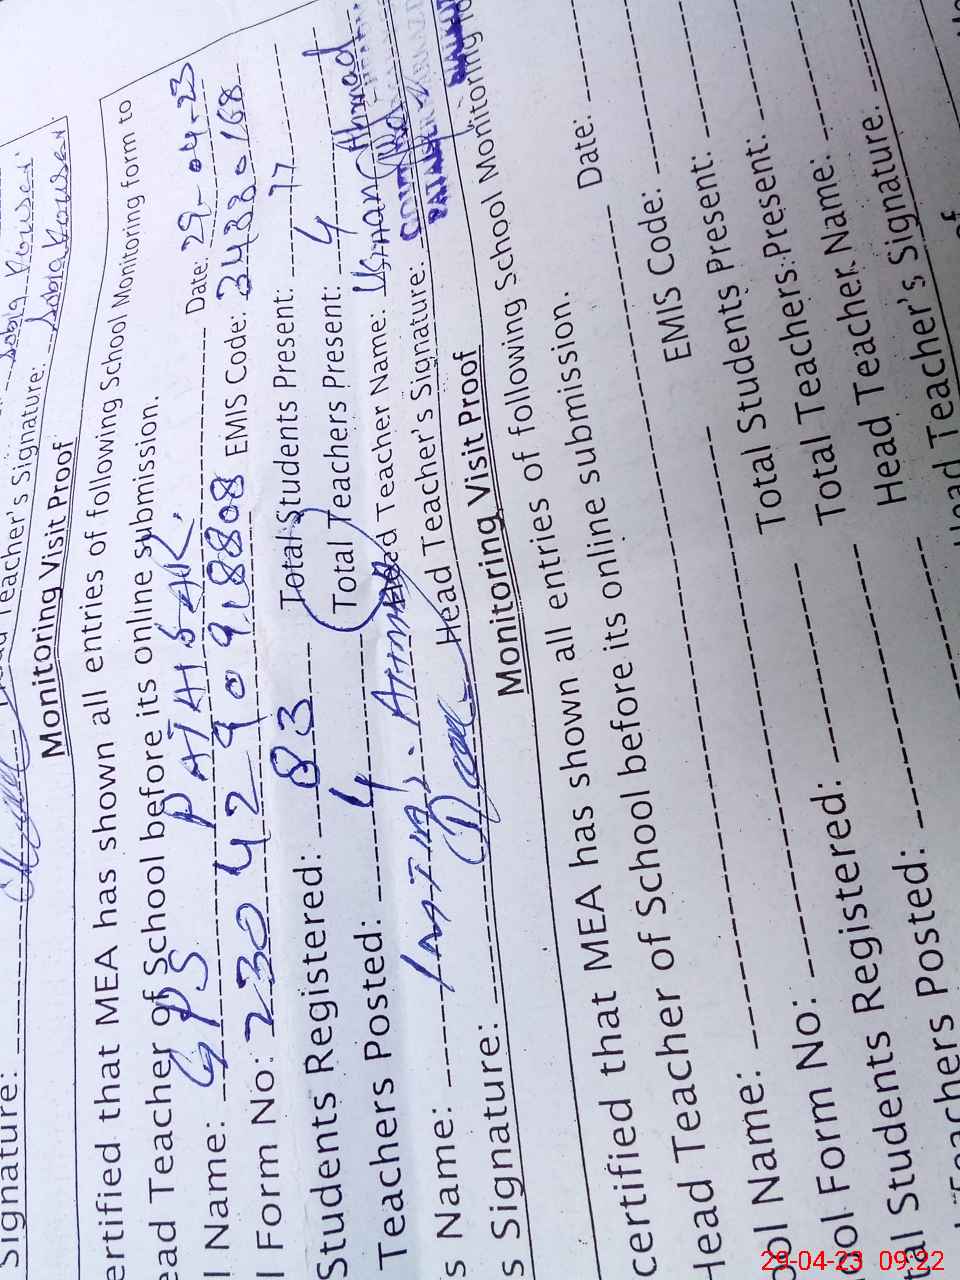 Teacher's Signature: Sobia Kousar
Signature:
Monitoring Visit Proof
ertified that MEA has shown all entries of following School Monitoring form to
ead Teacher of School before its online submission.
l Name: GPS Date: 29-04-23
l Form No: 230 42 909 18808 EMIS Code: 34330168
Students Registered: 83 Total Students Present: 77
Teachers Posted: 4 Total Teachers Present: 4
s Name: Head Teacher Name: Usman Ahmad
s Signature: Head Teacher's Signature:
Monitoring Visit Proof
certified that MEA has shown all entries of following School Monitoring fo
Head Teacher of School before its online submission.
ool Name: Date:
ool Form No: EMIS Code:
al Students Registered: Total Students Present:
Teachers Posted: Total Teachers Present:
Head Teacher Name:
Head Teacher's Signature:
29-04-23 09:22